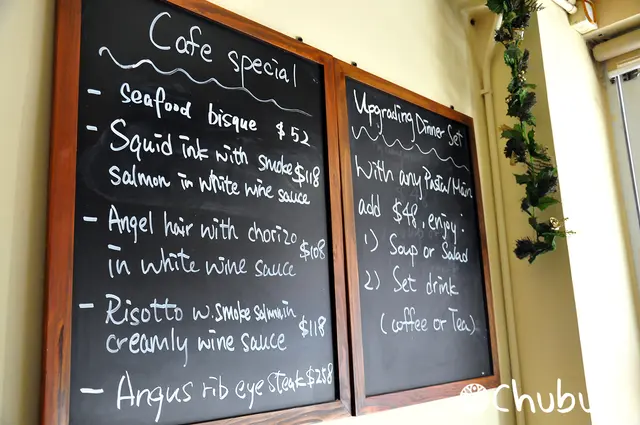 Cafe special
- seafood bisque $52
- Squid ink with smoke $118
salmon in white wine sauce
- Angel hair with chorizo $108
in white wine sauce
- Risotto w. smoke salmon in
creamly wine sauce $118
- Angus rib eye steak $258
Upgrading Dinner Set
With any Pasta/Main
add $48, enjoy:
1) Soup or Salad
2) Set drink
(coffee or Tea)
Chubu